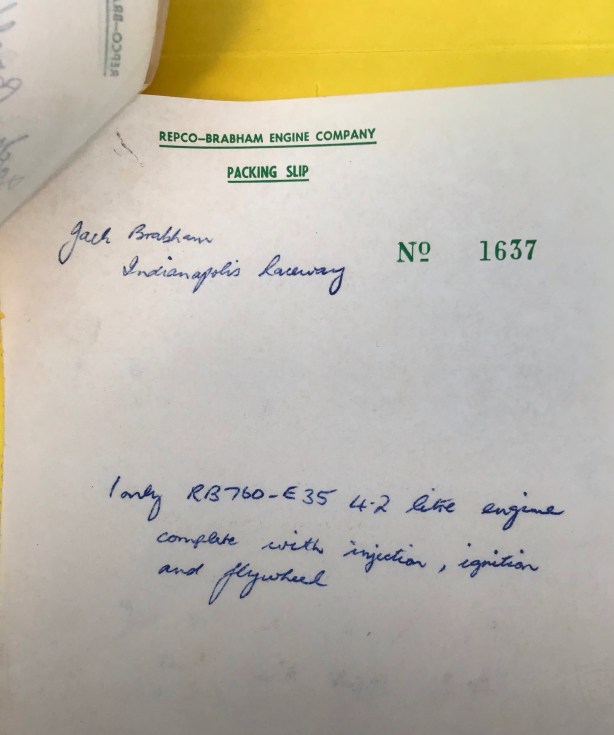 REPCO-BRABHAM ENGINE COMPANY
PACKING SLIP
Jack Brabham
Indianapolis Raceway
Nº 1637
1 only RB760-E35 4·2 litre engine
complete with injection, ignition
and flywheel